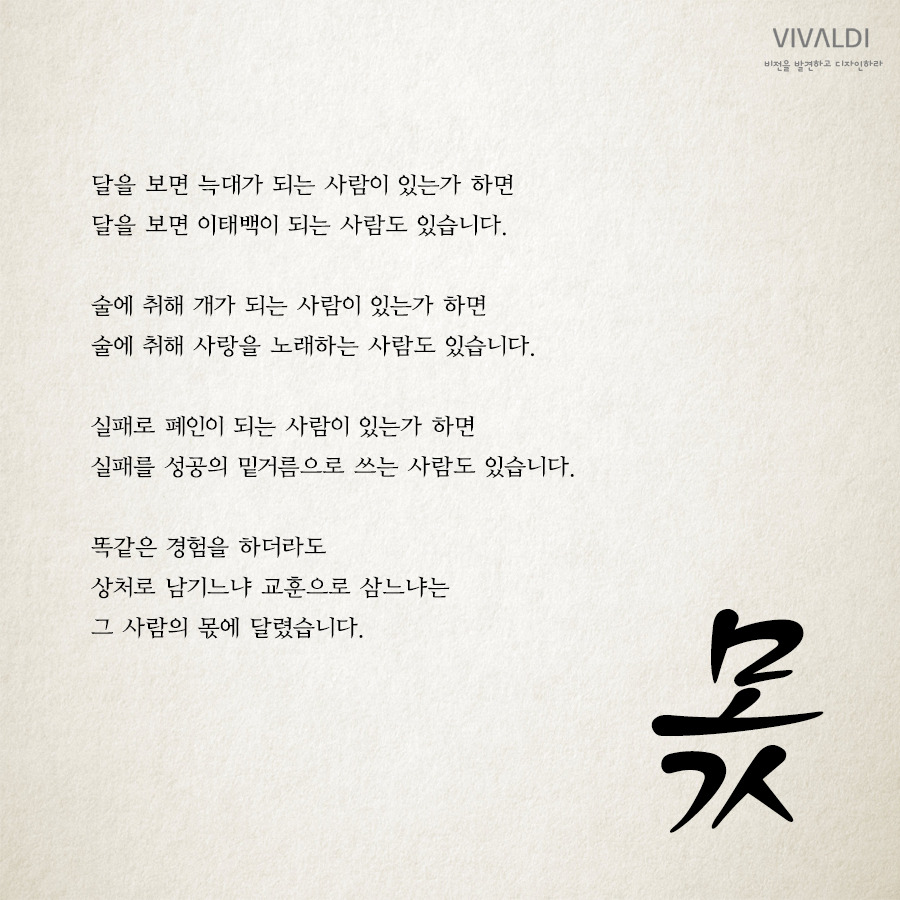 VIVALDI
비전을 발견하고 디자인하라
달을 보면 늑대가 되는 사람이 있는가 하면
달을 보면 이태백이 되는 사람도 있습니다.
술에 취해 개가 되는 사람이 있는가 하면
술에 취해 사랑을 노래하는 사람도 있습니다.
실패로 폐인이 되는 사람이 있는가 하면
실패를 성공의 밑거름으로 쓰는 사람도 있습니다.
똑같은 경험을 하더라도
상처로 남기느냐 교훈으로 삼느냐는
그 사람의 몫에 달렸습니다.
몫